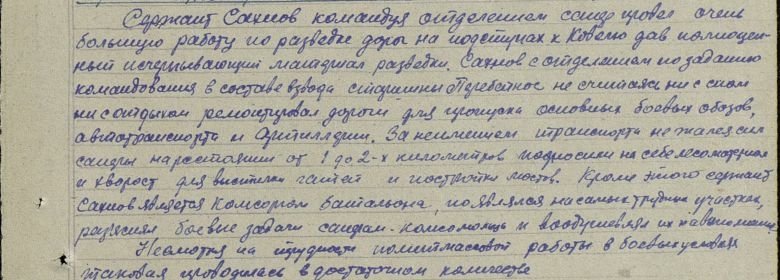 Сержант Сахнов командуя отделением сапер провел очень
большую работу по разведке дорог на подступах к Ковелю дав полноцен-
ный исчерпывающий материал разведки. Сахнов с отделением по заданию
командования в составе взвода старшины не считаясь ни с сном
ни с отдыхом ремонтировал дороги для пропуска основных боевых обозов,
автотранспорта и Артиллерии. За неимением транспорта не жалея сил
саперы на расстоянии от 1 до 2-х километров подносили на себе лесоматериал
и хворост для выстилки гатей и постройки мостов. Кроме этого сержант
Сахнов является Комсоргом батальона, появлялся на самых трудных участках,
раз'яснял боевые задачи саперам-комсомольц и воодушевлял их на
Несмотря на трудности политмассовой работы в боевых условиях
таковая проводилась в достаточном количестве